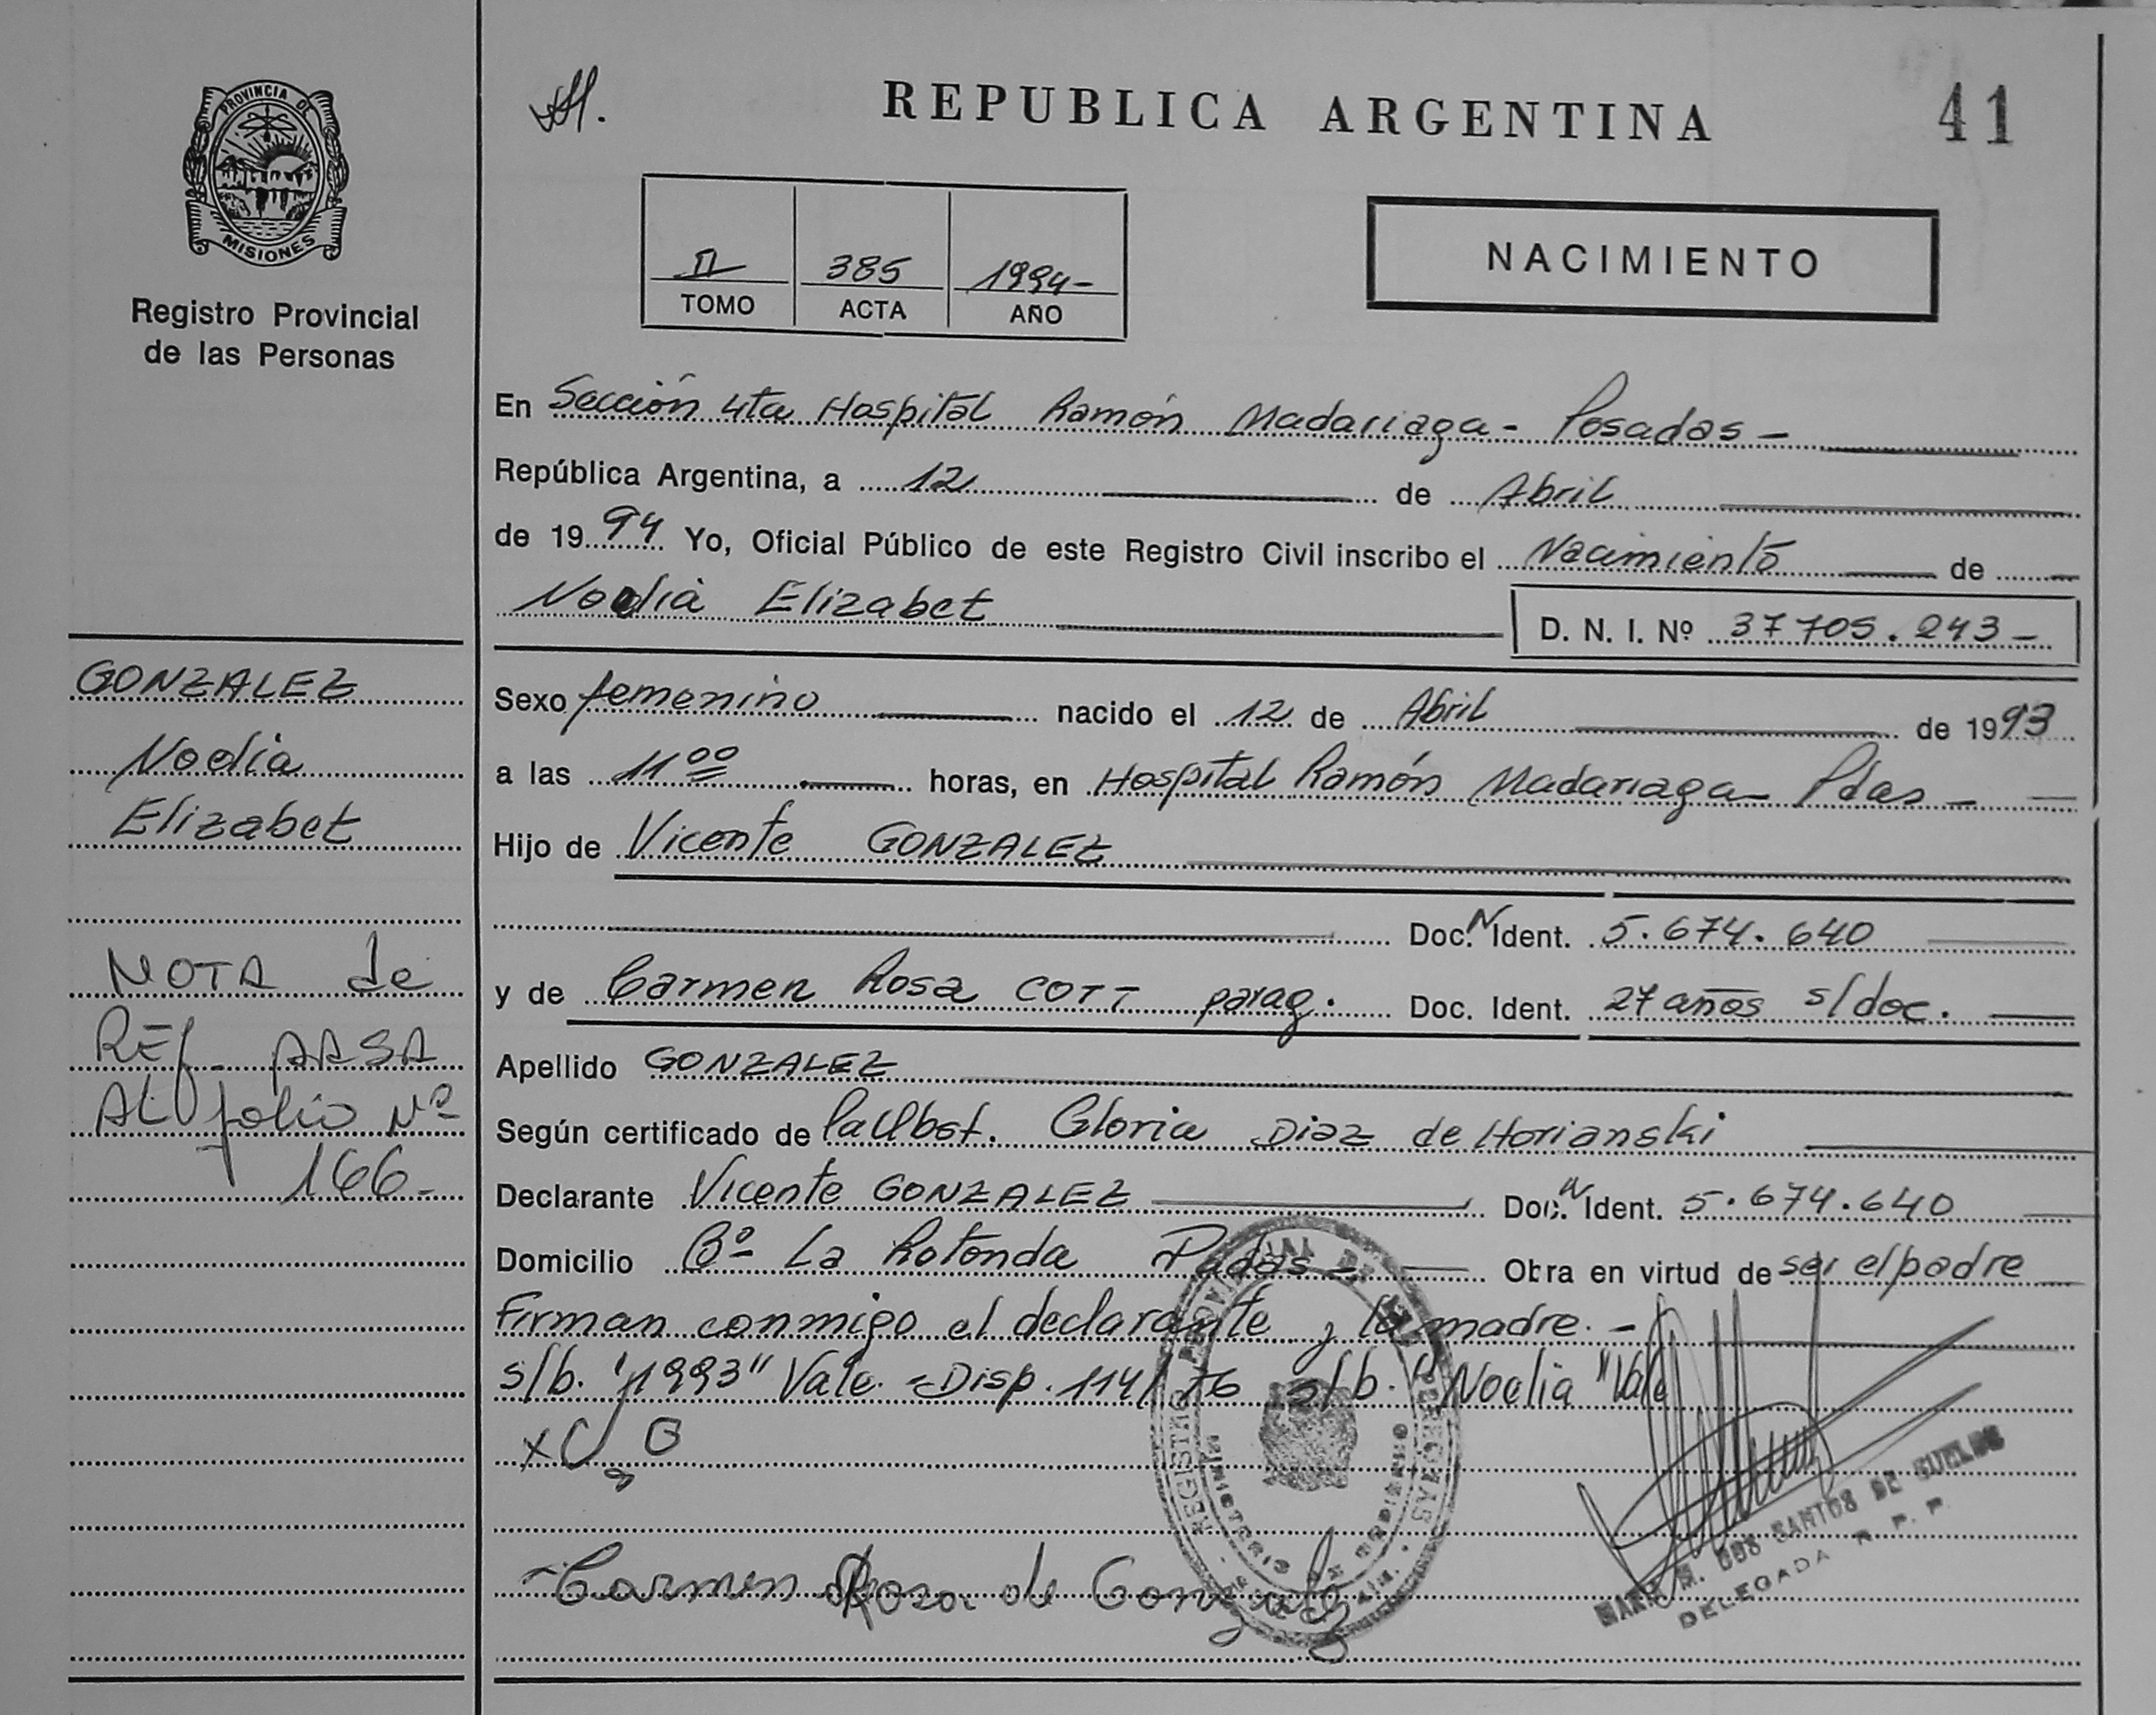 PROVINCIA DE
MISIONES
Registro Provincial
de las Personas
REPUBLICA ARGENTINA
41
II 385 1994-
TOMO ACTA AÑO
NACIMIENTO
En Sección 4ta Hospital Ramón Madariaga - Posadas -
República Argentina, a 12 de Abril
de 1994 Yo, Oficial Público de este Registro Civil inscribo el Nacimiento de
Noelia Elizabet D. N. I. Nº 37705.243-
Sexo femenino nacido el 12 de Abril de 1993
a las 11 00 horas, en Hospital Ramón Madariaga - Pdas -
Hijo de Vicente GONZALEZ
Doc. N Ident. 5.674.640
y de Carmen Rosa COTT parag. Doc. Ident. 27 años s/doc.
Apellido GONZALEZ
Según certificado de Gloria Diaz de Horianski
Declarante Vicente GONZALEZ Doc. N Ident. 5.674.640
Domicilio Bº La Rotonda Pdas - Obra en virtud de ser el padre
Firman conmigo el declarante y la madre. -
s/b. "1993" Vale. - Disp. 114/76 s/b. "Noelia" Vale
Carmen Rosa de Gonzalez
DOS SANTOS DE SUELDO
DELEGADA R. P. P.
GONZALEZ
Noelia
Elizabet
NOTA de
REf. PASA
AL folio Nº
166-